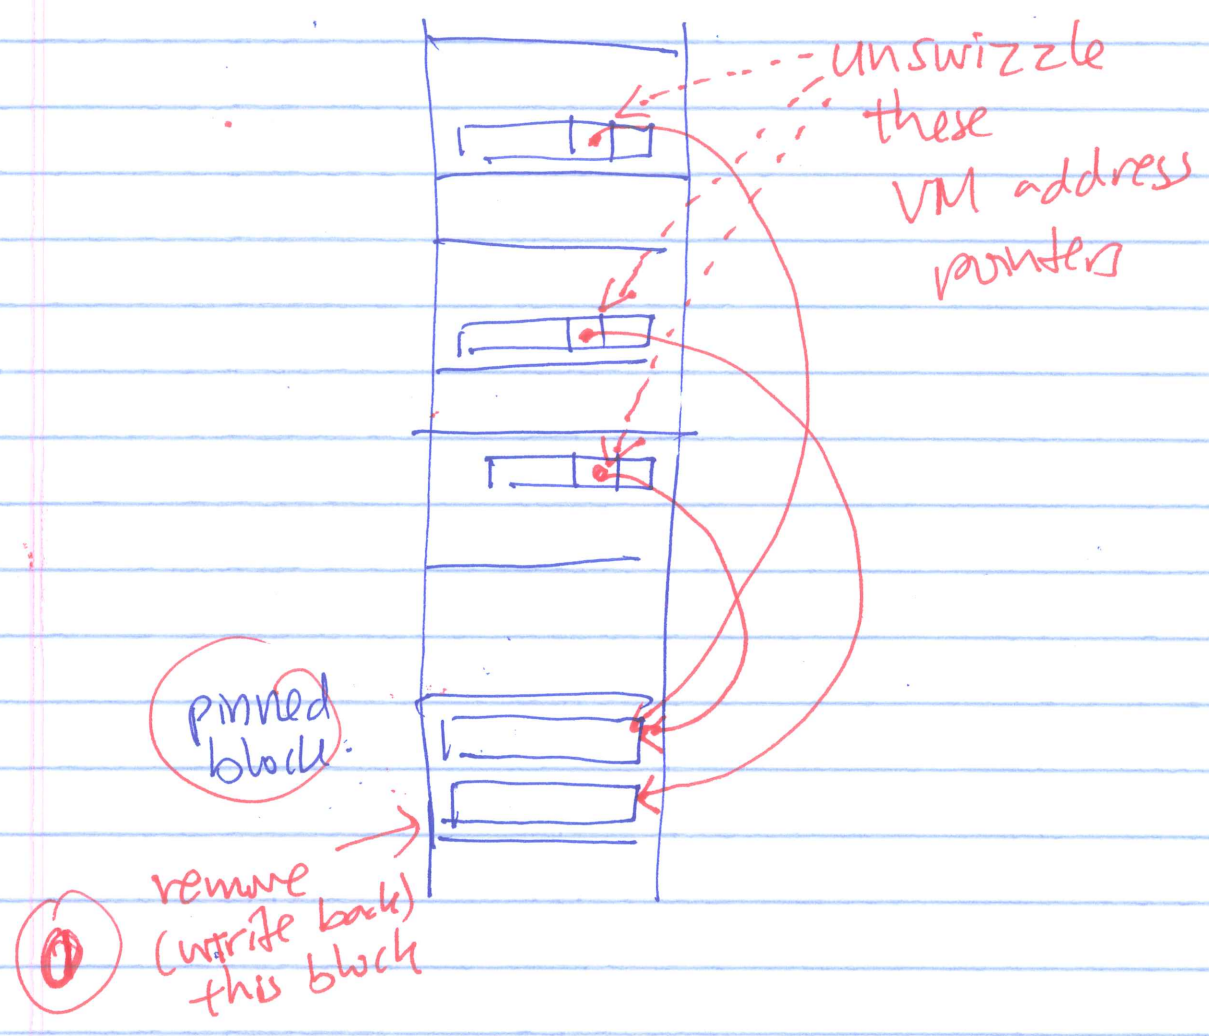 unswizzle
these
VM address
pointers
pinned
block:
remove
(write back)
this block